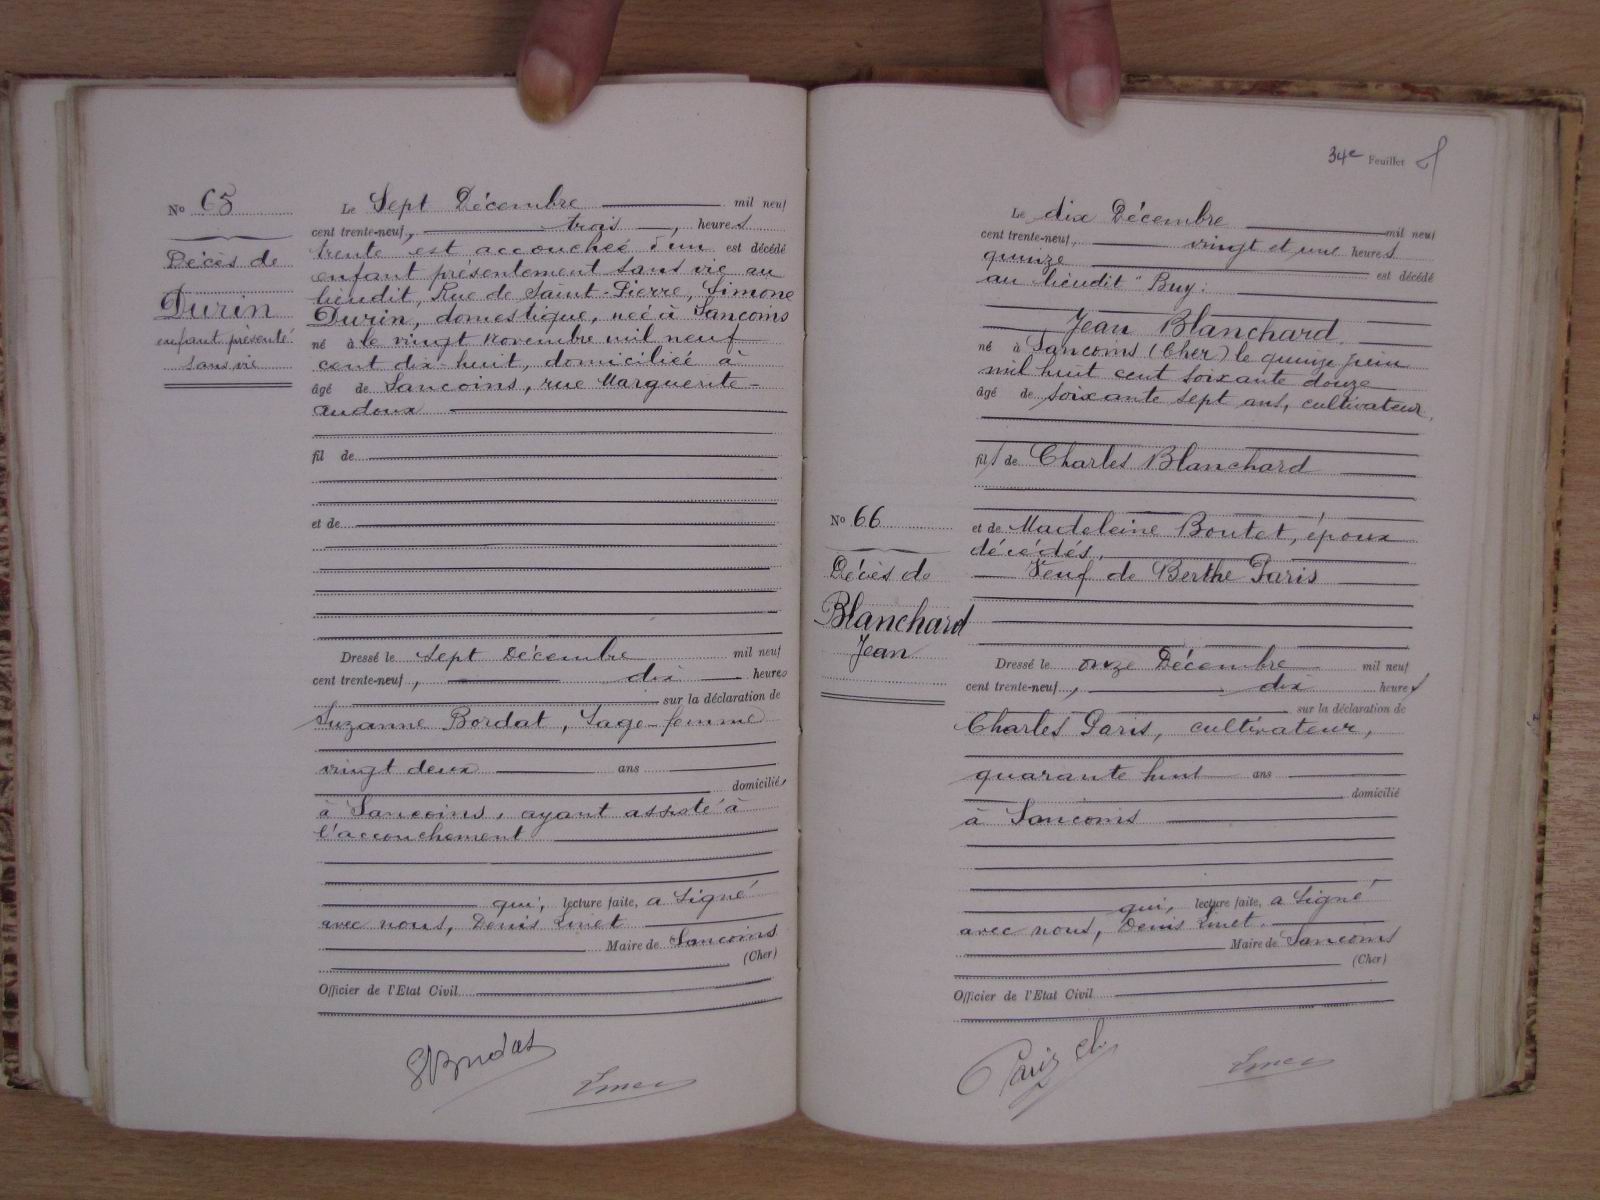 No 65
Décès de
Durin
enfant présenté
sans vie
Le Sept Décembre mil neuf
cent trente-neuf, trois, heures
trente est accouchée d'un est décédé
enfant présentement sans vie au
lieudit, Rue de Saint-Pierre, Simone
Durin, domestique, née à Sancoins
né à le vingt novembre mil neuf
cent dix-huit, domiciliée à
âgé de Sancoins, rue Marguerite-
Audoux
fil de
et de
Dressé le Sept Décembre mil neuf
cent trente-neuf, dix heures
sur la déclaration de
Suzanne Bordat, Sage-femme
vingt deux ans
domiciliée
à Sancoins, ayant assisté à
l'accouchement
qui, lecture faite, a Signé
avec nous, Denis
Maire de Sancoins
(Cher)
Officier de l'Etat Civil
SBordat
34e Feuillet
No 66
Décès de
Blanchard
Jean
Le dix Décembre mil neuf
cent trente-neuf, vingt et une heures
quinze est décédé
au lieudit "Buy"
Jean Blanchard
né à Sancoins (Cher) le quinze juin
mil huit cent soixante douze
âgé de soixante sept ans, cultivateur,
fils de Charles Blanchard
et de Madeleine Boutet, époux
décédés,
Veuf de Berthe Paris
Dressé le onze Décembre mil neuf
cent trente-neuf, dix heures
sur la déclaration de
Charles Paris, cultivateur,
quarante huit ans
domicilié
à Sancoins
qui, lecture faite, a Signé
avec nous, Denis
Maire de Sancoins
(Cher)
Officier de l'Etat Civil
Paris ch